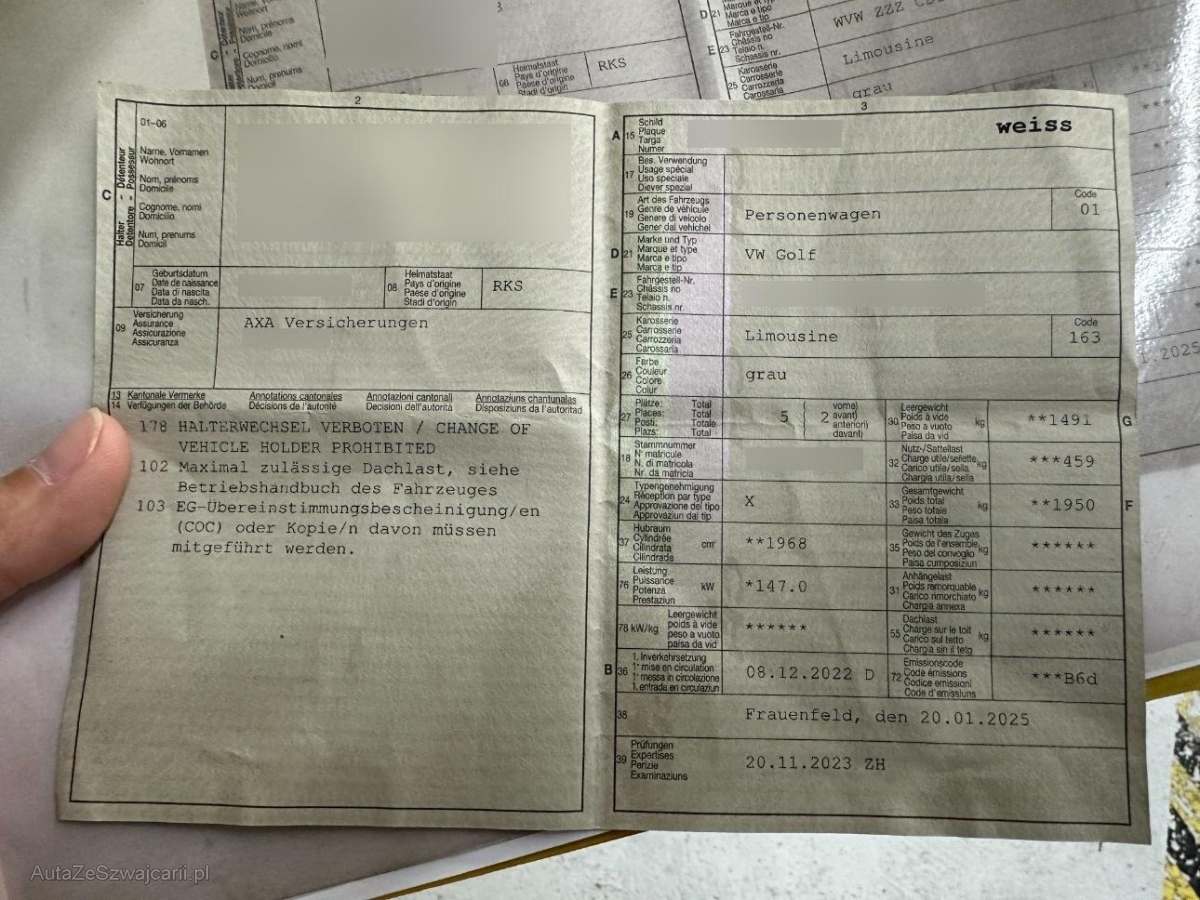 3
Name, Vornamen
Wohnort
Nom, prénoms
Domicile
Cognome, nomi
Domicilio
Num, prenums
08
Heimatstaat
Pays d'origine
Paese d'origine
Stadi d'origin
RKS
D 21
Marque et type
Marca e tipo
Marca e tip
WVW ZZZ
E 23
Fahrgestell-Nr.
Châssis no
Telaio n.
Schassis nr.
Limousine
25
Karosserie
Carrosserie
Carrozzeria
Carossaria
grau
2
C
Halter - Détenteur
Detentore - Possessur
01-06
Name, Vornamen
Wohnort
Nom, prénoms
Domicile
Cognome, nomi
Domicilio
Num, prenums
Domicil
07
Geburtsdatum
Date de naissance
Data di nascita
Data da nasch.
08
Heimatstaat
Pays d'origine
Paese d'origine
Stadi d'origin
RKS
09
Versicherung
Assurance
Assicurazione
Assicuranza
AXA Versicherungen
13 Kantonale Vermerke Annotations cantonales Annotazioni cantonali Annotaziuns chantunalas
14 Verfügungen der Behörde Décisions de l'autorité Decisioni dell'autorità Disposiziuns da l'autoritad
178 HALTERWECHSEL VERBOTEN / CHANGE OF
VEHICLE HOLDER PROHIBITED
102 Maximal zulässige Dachlast, siehe
Betriebshandbuch des Fahrzeuges
103 EG-Übereinstimmungsbescheinigung/en
(COC) oder Kopie/n davon müssen
mitgeführt werden.
3
A 15
Schild
Plaque
Targa
Numer
weiss
17
Bes. Verwendung
Usage spécial
Uso speciale
Diever spezial
19
Art des Fahrzeugs
Genre de véhicule
Genere di veicolo
Gener dal vehichel
Personenwagen
Code
01
D 21
Marke und Typ
Marque et type
Marca e tipo
Marca e tip
VW Golf
E 23
Fahrgestell-Nr.
Châssis no
Telaio n.
Schassis nr.
25
Karosserie
Carrosserie
Carrozzeria
Carossaria
Limousine
Code
163
26
Farbe
Couleur
Colore
Colur
grau
27
Plätze: Total
Places: Total
Posti: Totale
Plazs: Total
5 { 2 vorne)
avant)
anteriori)
davant)
30
Leergewicht
Poids à vide
Peso a vuoto
Paisa da vid
kg
**1491
G
18
Stammnummer
N° matricule
N. di matricola
Nr. da matricla
32
Nutz-/Sattellast
Charge utile/sellette
Carico utile/sella
Chargia utila/sella
kg
***459
24
Typengenehmigung
Réception par type
Approvazione del tipo
Approvaziun dal tip
X
33
Gesamtgewicht
Poids total
Peso totale
Paisa totala
kg
**1950
F
37
Hubraum
Cylindrée
Cilindrata
Cilindrada
cm³
**1968
35
Gewicht des Zuges
Poids de l'ensemble
Peso del convoglio
Paisa cumposiziun
kg
******
76
Leistung
Puissance
Potenza
Prestaziun
kW
*147.0
31
Anhängelast
Poids remorquable
Carico rimorchiato
Chargia annexa
kg
******
78 kW/kg
Leergewicht
poids à vide
peso a vuoto
paisa da vid
******
55
Dachlast
Charge sur le toit
Carico sul tetto
Chargia sin il tetg
kg
******
B 36
1. Inverkehrsetzung
1re mise en circulation
1a messa in circolazione
1. entrada en circulaziun
08.12.2022 D
72
Emissionscode
Code émissions
Codice emissioni
Code d'emissiuns
***B6d
38
Frauenfeld, den 20.01.2025
39
Prüfungen
Expertises
Perizie
Examinaziuns
20.11.2023 ZH
AutaZeSzwajcarii.pl